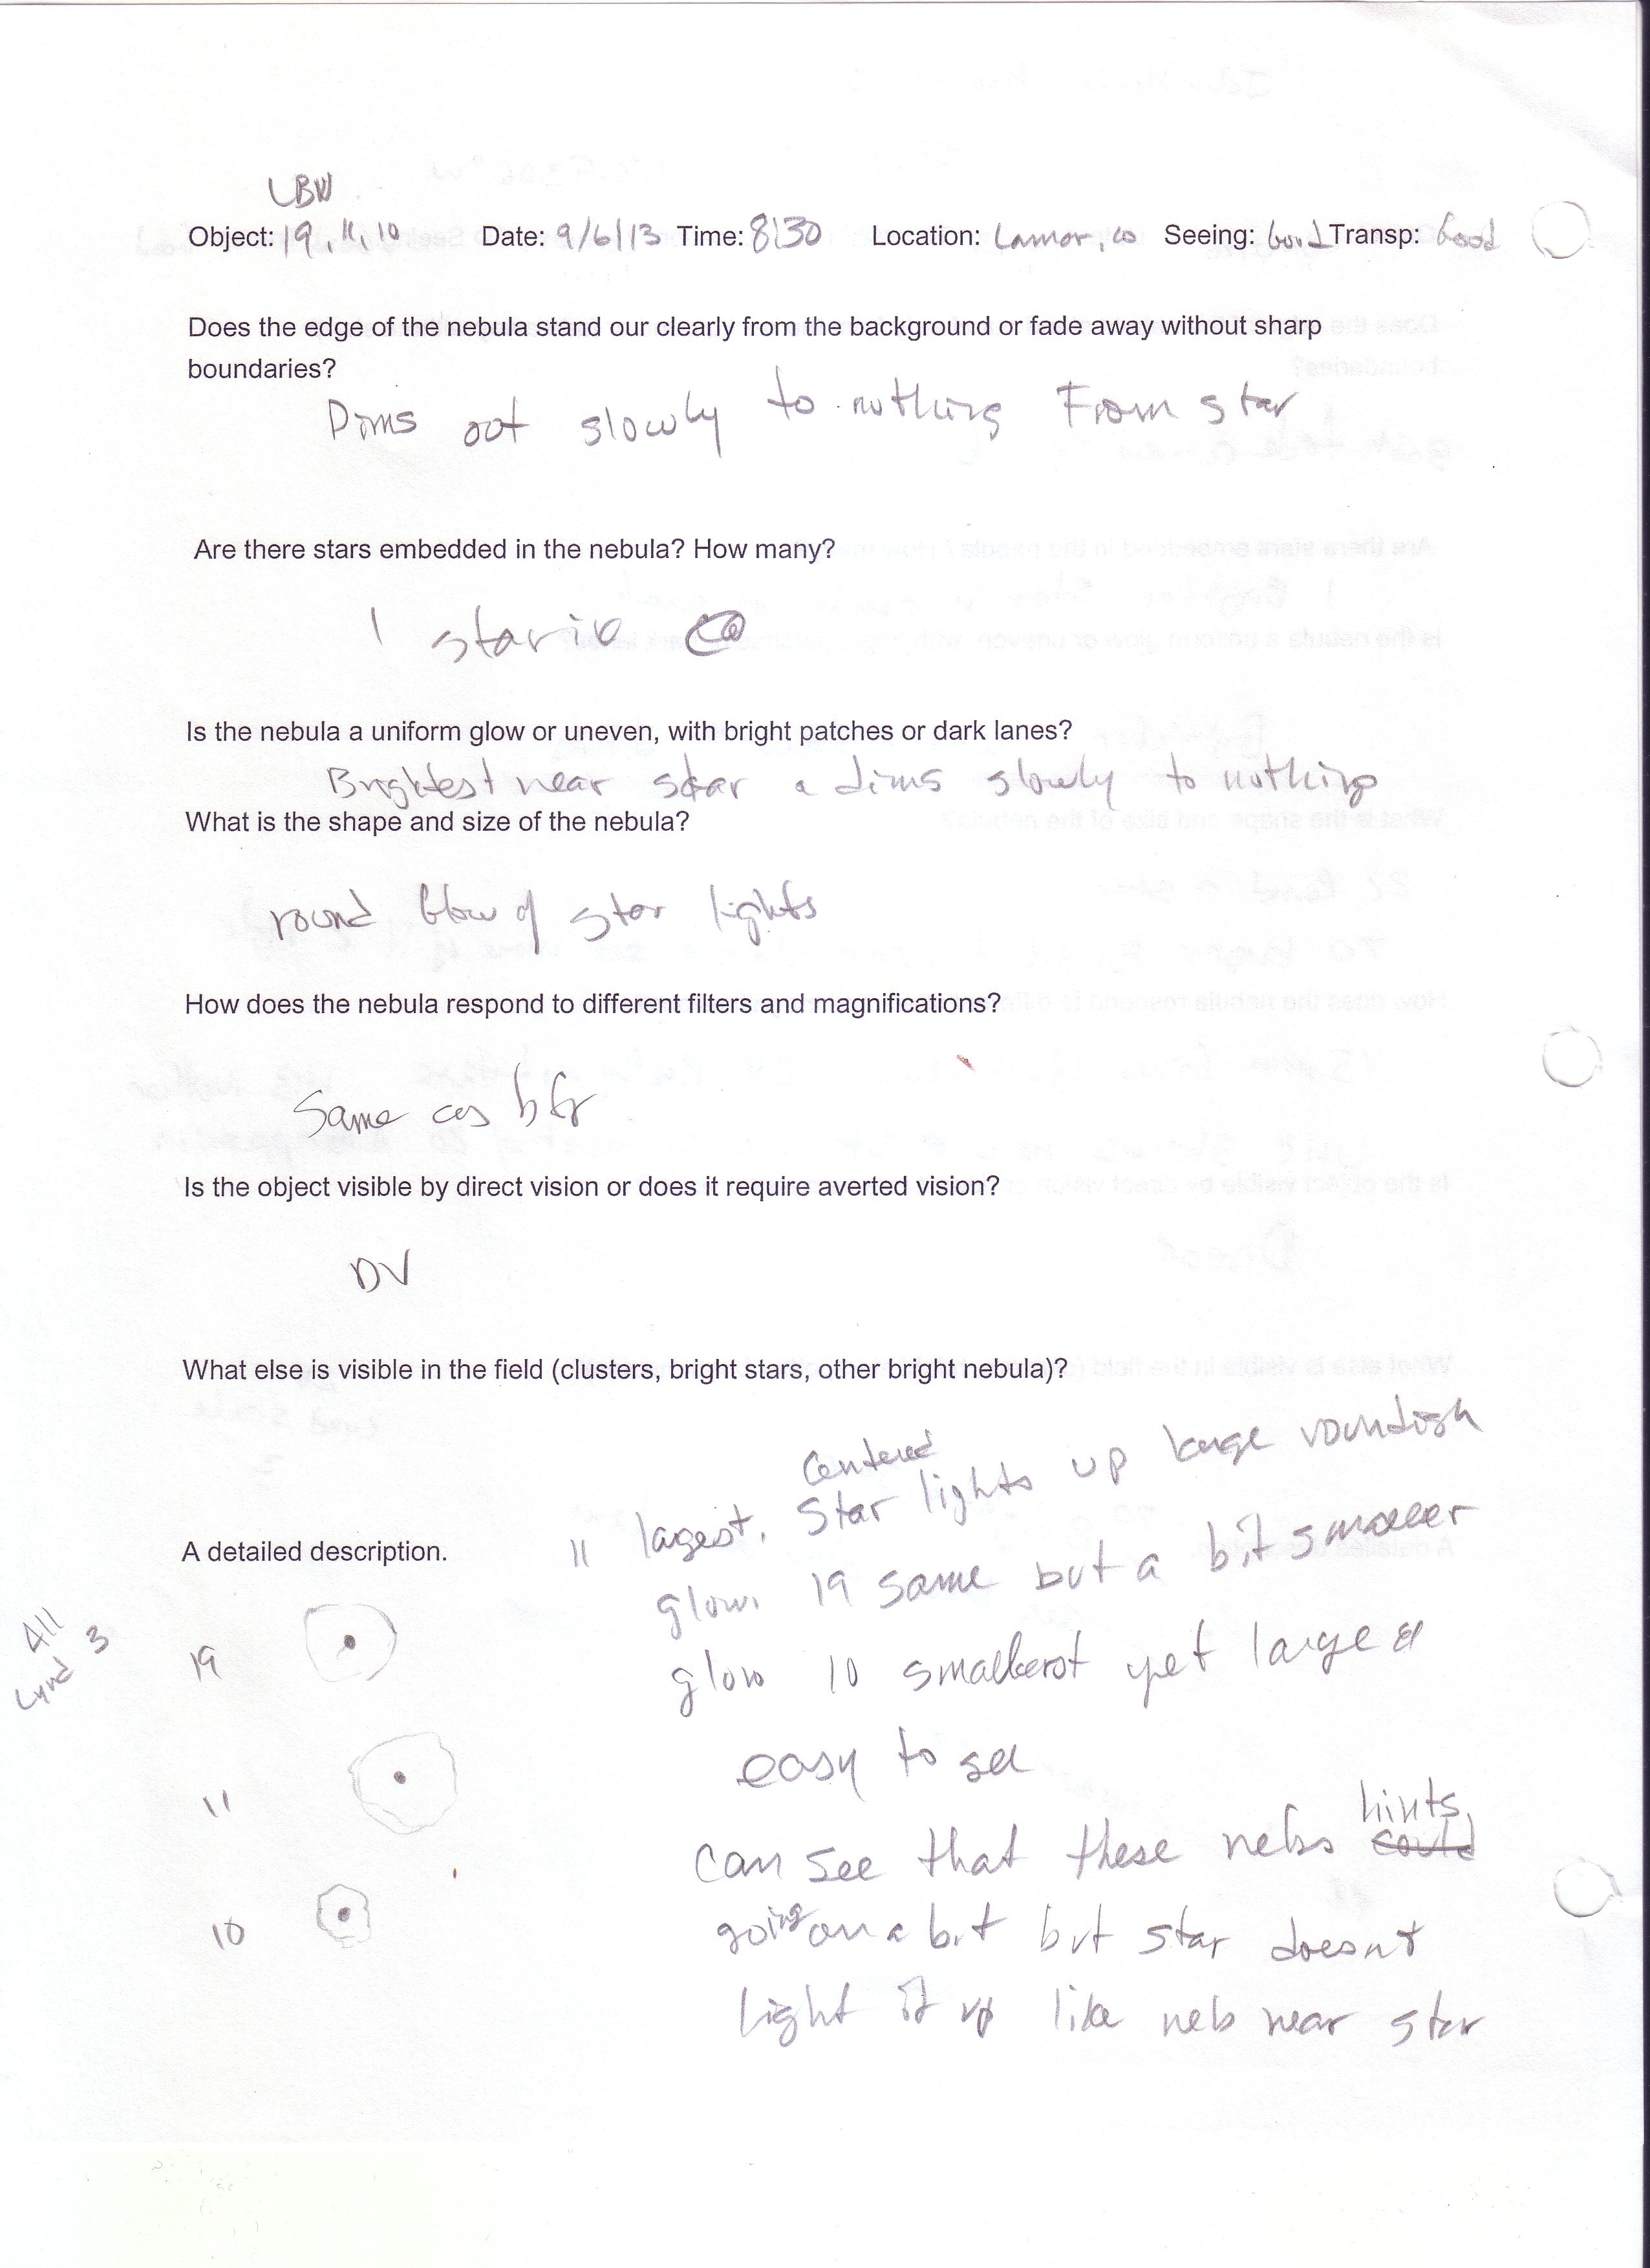 LBN
Object: 19, 11, 10 Date: 9/6/13 Time: 8:30 Location: Lamar, co Seeing: Good Transp: Good
Does the edge of the nebula stand our clearly from the background or fade away without sharp
boundaries?
Dims out slowly to nothing From star
Are there stars embedded in the nebula? How many?
1 star in
Is the nebula a uniform glow or uneven, with bright patches or dark lanes?
Brightest near star & dims slowly to nothing
What is the shape and size of the nebula?
round Glow of star lights
How does the nebula respond to different filters and magnifications?
Same as bfr
Is the object visible by direct vision or does it require averted vision?
DV
What else is visible in the field (clusters, bright stars, other bright nebula)?
A detailed description.
Centered
11 largest. Star lights up large roundish
glow. 19 same but a bit smaller
glow 10 smallerst yet large &
easy to see
can see that these nebs hints
going on a bit but star doesnt
light it up like neb near star
All
Lynd 3
19
11
10